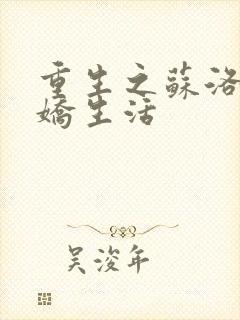 重生之蘇洛
嬌生活
吳浚年